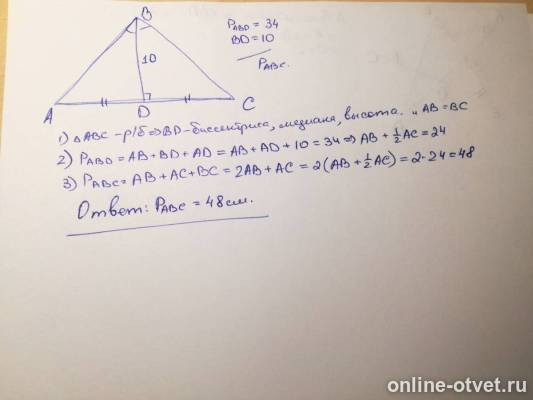 B
P ABD = 34
BD = 10
P ABC.
10
A
D
C
1) △ ABC - р/б ⇒ BD - биссектриса, медиана, высота. и AB = BC
2) P ABD = AB + BD + AD = AB + AD + 10 = 34 ⇒ AB + 1/2 AC = 24
3) P ABC = AB + AC + BC = 2AB + AC = 2(AB + 1/2 AC) = 2·24 = 48
Ответ: P ABC = 48 см.
online-otvet.ru